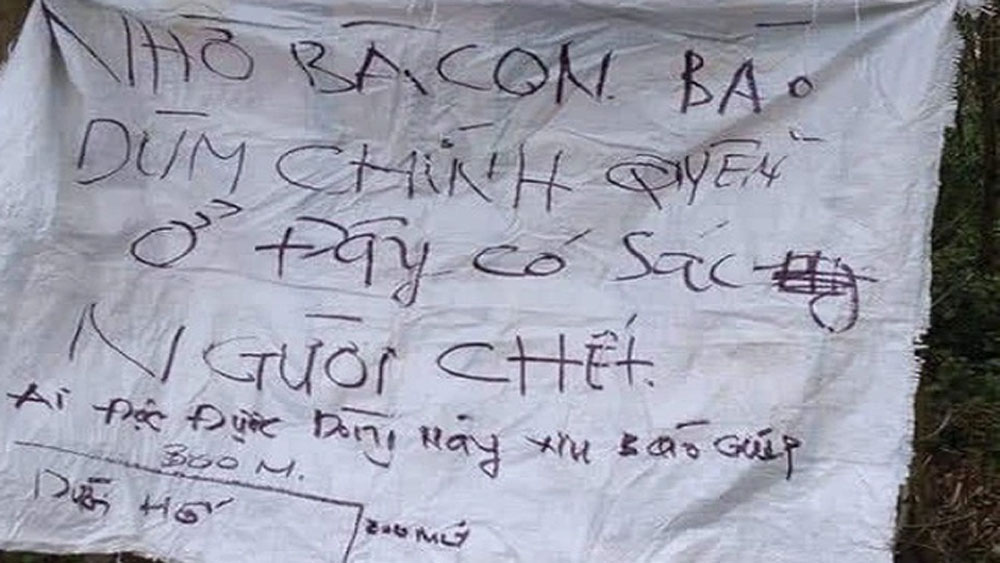 NHỜ BÀ CON BÁO
DÙM CHÍNH QUYỀN
Ở ĐÂY CÓ SÁC
NGƯỜI CHẾT.
Ai Đọc Được Dòng Này xin Báo Giúp
300 M.
Dưới Hố